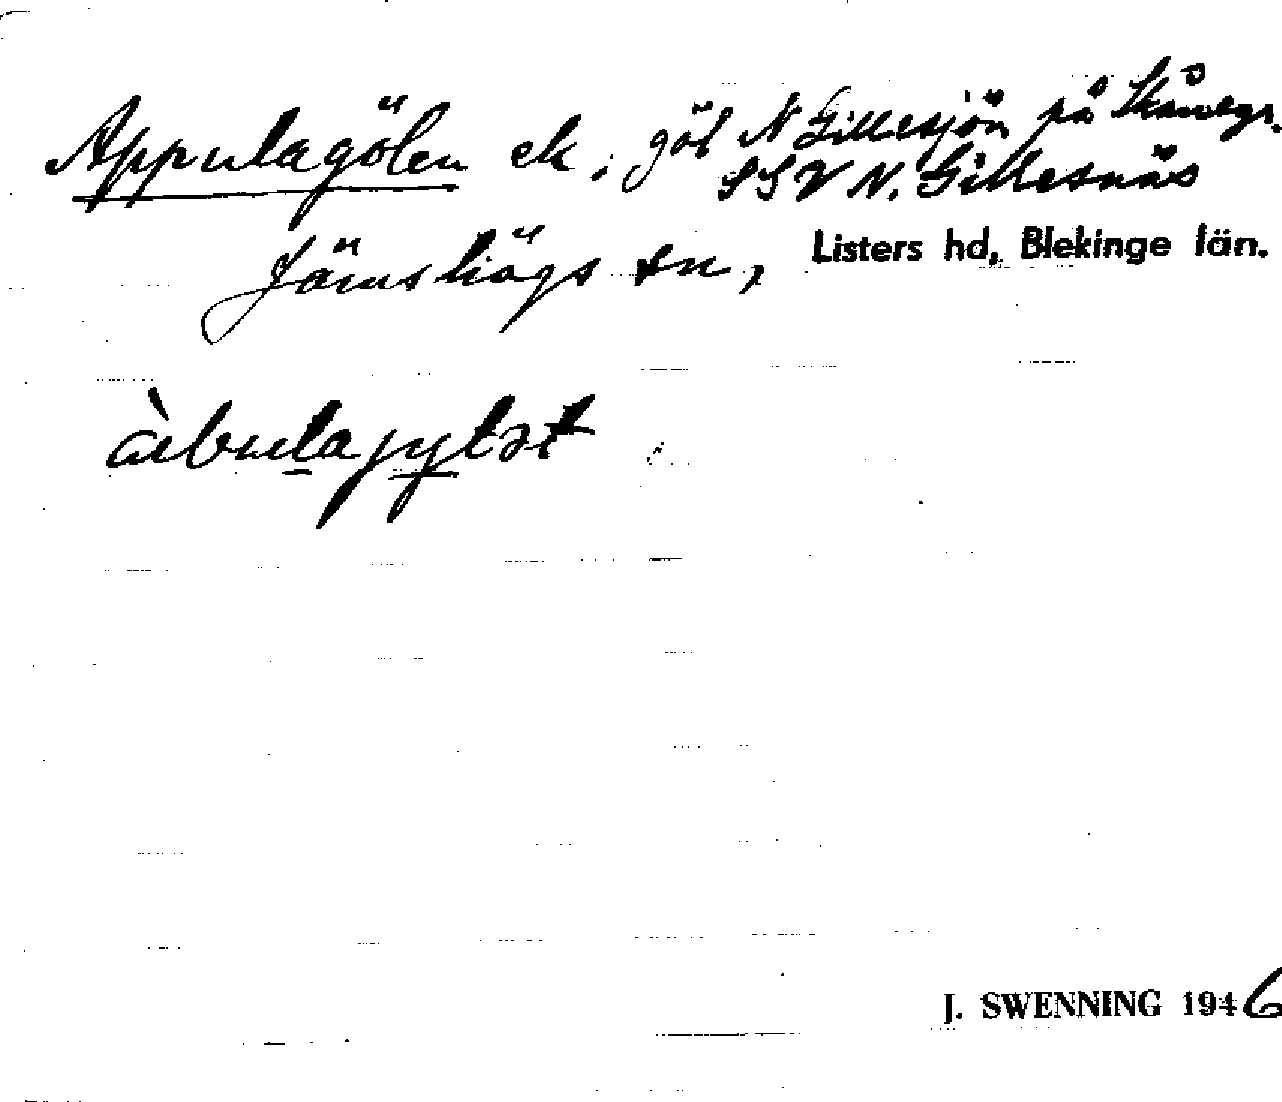 Appulagölen ek; göl N Gillesjön på Skånegr.
SSV N. Gillesnäs
Jämshögs sn, Listers hd, Blekinge län.
àbulajylət
J. SWENNING 1946